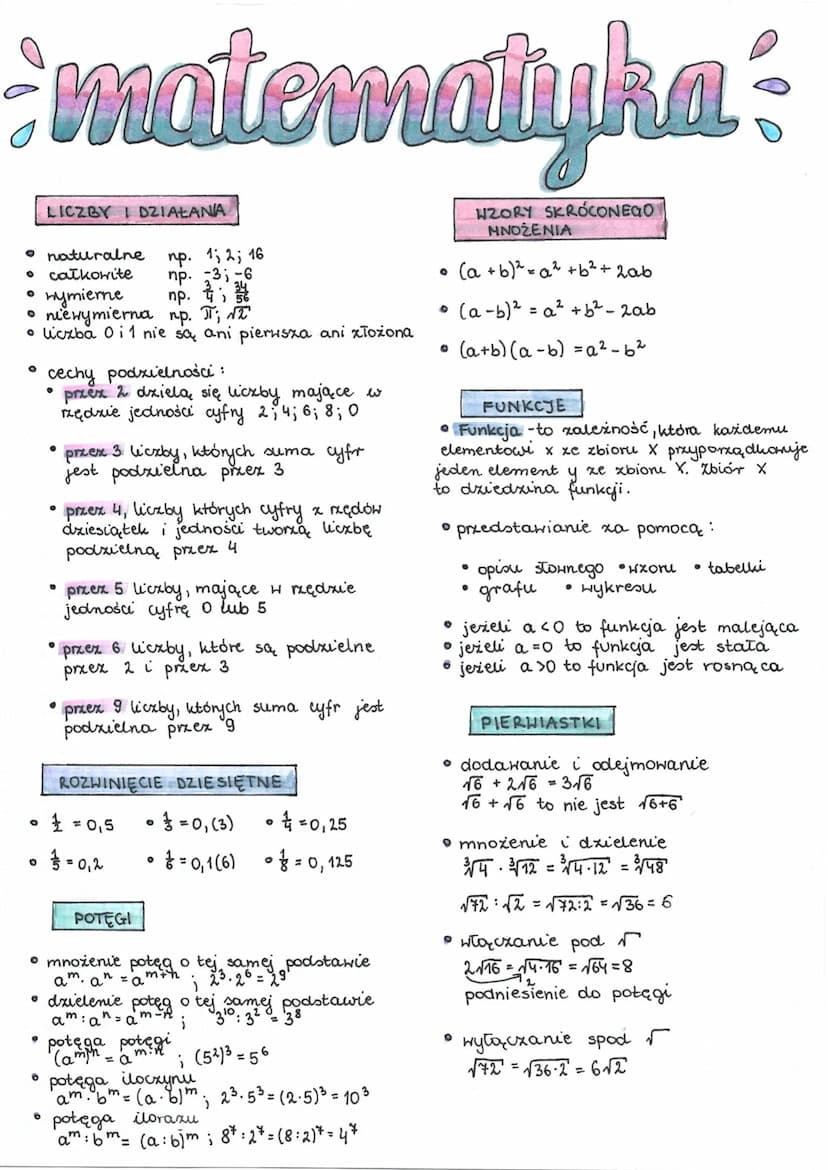 matematyka
LICZBY I DZIAŁANIA
• naturalne np. 1; 2; 16
• całkowite np. -3; -6
• wymierne np. 3/4; 34/56
• niewymierna np. π; √2
• liczba 0 i 1 nie są ani pierwsza ani złożona
• cechy podzielności:
• przez 2 dzielą się liczby mające w
rzędzie jedności cyfry 2; 4; 6; 8; 0
• przez 3 liczby, których suma cyfr
jest podzielna przez 3
• przez 4, liczby których cyfry z rzędów
dziesiątek i jedności tworzą liczbę
podzielną przez 4
• przez 5 liczby, mające w rzędzie
jedności cyfrę 0 lub 5
• przez 6 liczby, które są podzielne
przez 2 i przez 3
• przez 9 liczby, których suma cyfr jest
podzielna przez 9
ROZWINIĘCIE DZIESIĘTNE
• 1/2 = 0,5 • 1/3 = 0,(3) • 1/4 = 0,25
• 1/5 = 0,2 • 1/6 = 0,1(6) • 1/8 = 0,125
POTĘGI
• mnożenie potęg o tej samej podstawie
aᵐ · aⁿ = aᵐ⁺ⁿ ; 2³ · 2⁶ = 2⁹
• dzielenie potęg o tej samej podstawie
aᵐ : aⁿ = aᵐ⁻ⁿ ; 3¹⁰ : 3² = 3⁸
• potęga potęgi
(aᵐ)ⁿ = aᵐ˙ⁿ ; (5²)³ = 5⁶
• potęga iloczynu
aᵐ · bᵐ = (a · b)ᵐ ; 2³ · 5³ = (2·5)³ = 10³
• potęga ilorazu
aᵐ : bᵐ = (a : b)ᵐ ; 8⁷ : 2⁷ = (8:2)⁷ = 4⁷
WZORY SKRÓCONEGO
MNOŻENIA
• (a+b)² = a² + b² + 2ab
• (a-b)² = a² + b² - 2ab
• (a+b)(a-b) = a² - b²
FUNKCJE
• Funkcja - to zależność, która każdemu
elementowi x ze zbioru X przyporządkowuje
jeden element y ze zbioru Y. Zbiór X
to dziedzina funkcji.
• przedstawianie za pomocą:
• opisu słownego • wzoru • tabelki
• grafu • wykresu
• jeżeli a<0 to funkcja jest malejąca
• jeżeli a=0 to funkcja jest stała
• jeżeli a>0 to funkcja jest rosnąca
PIERWIASTKI
• dodawanie i odejmowanie
√6 + 2√6 = 3√6
√6 + √6 to nie jest √6+6
• mnożenie i dzielenie
∛4 · ∛12 = ∛4·12 = ∛48
√72 : √2 = √72:2 = √36 = 6
• włączanie pod √
2√16 = √4·16 = √64 = 8
2
podniesienie do potęgi
• wyłączanie spod √
√72 = √36·2 = 6√2